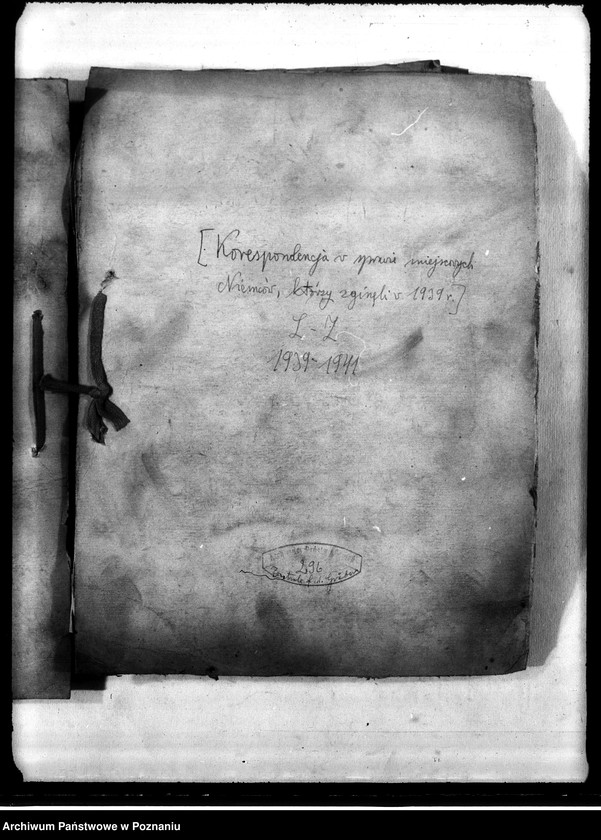 [Korespondencja w sprawie miejscowych
Niemców, którzy zginęli w 1939 r.]
L-Z
1939-1941
296
Archiwum Państwowe w Poznaniu